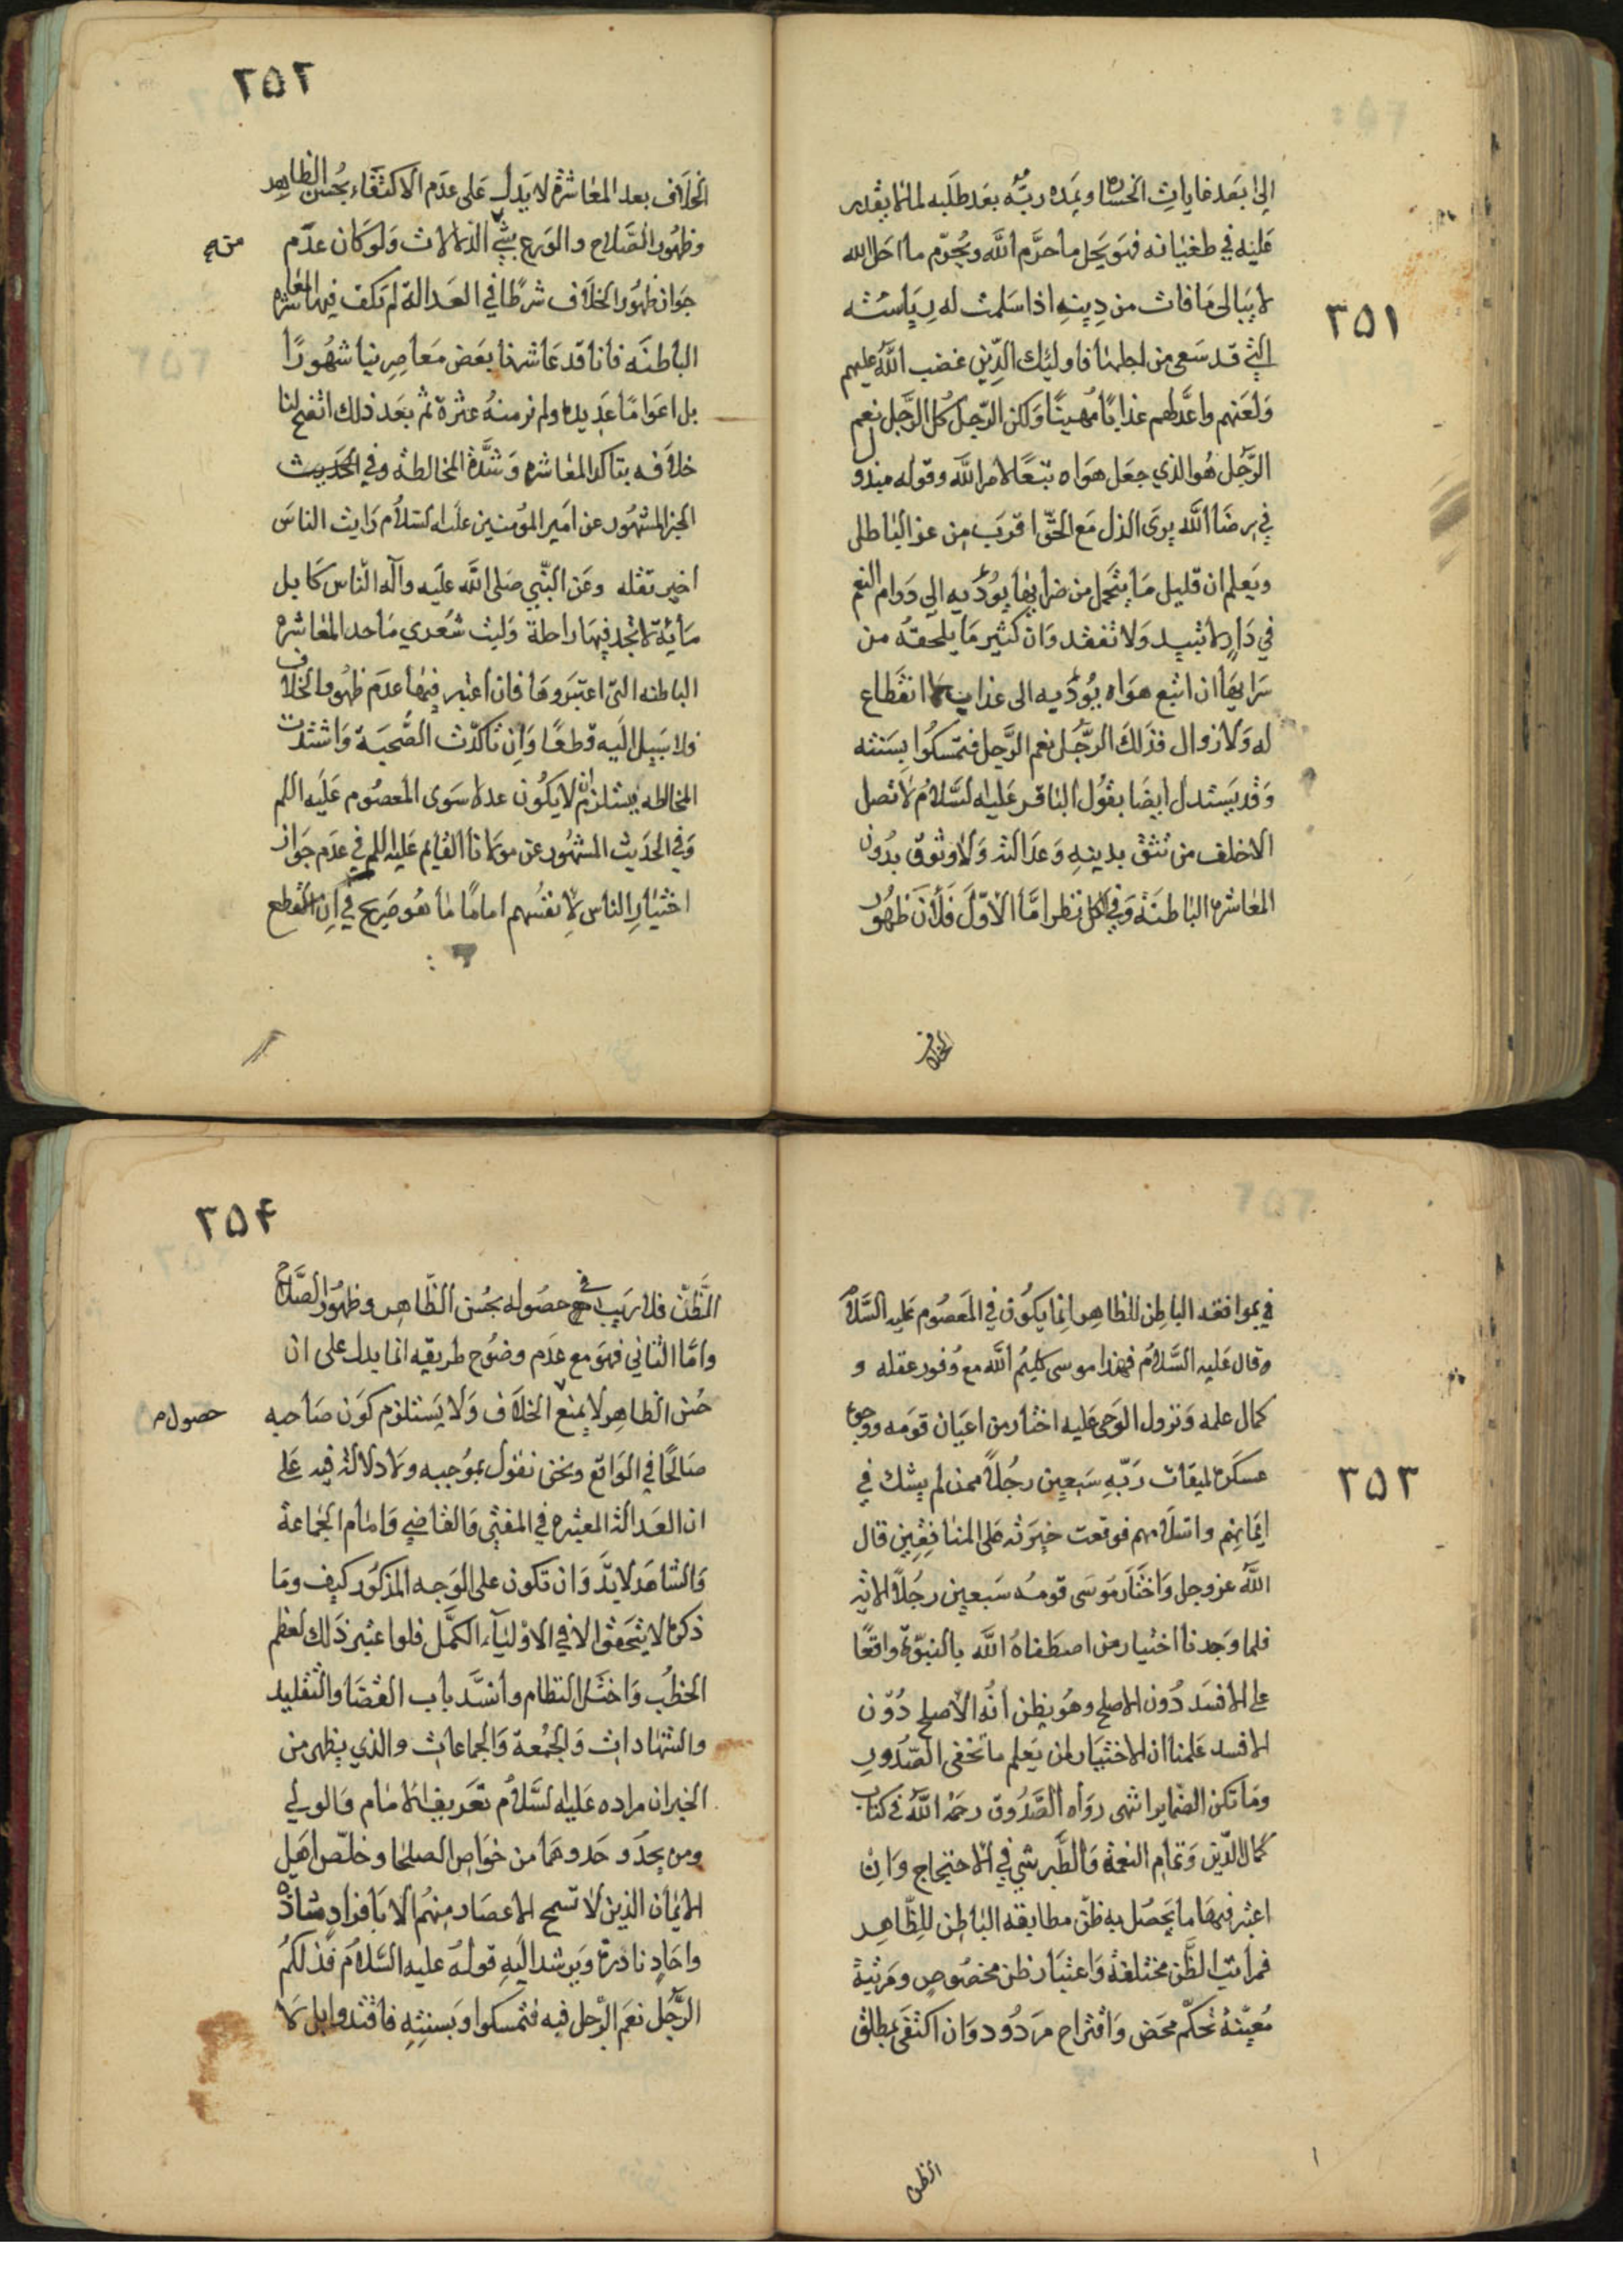 ٣٥١
الى بعد غايات الخساره ويمده ربّه بعد طلبه لما لا يقدر
عليه في طغيانه فهو يحل ما حرّم الله ويحرّم ما احل الله
لا يبالى ما فات من دينه اذا سلمت له رياسته
التي قد سعى من اجلها فاولئك الذين غضب الله عليهم
ولعنهم واعدّ لهم عذابًا مُهينًا ولكن الرّجل كل الرّجل نعم
الرّجل هو الذي جعل هواه تبعًا لامر الله وقوله مبذو
في رضا الله يرى الذل مع الحقّ اقرب من عز الباطل
ويعلم ان قليل ما يتحمل من ضرائها يؤدّيه الى دوام النعم
في دار لا تبيد ولا تنفد وان كثير ما يلحقه من
سرايها ان اتبع هواه يؤدّيه الى عذاب لا انقطاع
له ولا زوال فذلك الرّجل نعم الرّجل فتمسكوا بسنته
وقد يستدل ايضا بقول الباقر عليه السلام لا تصل
الا خلف من تثق بدينه وعدالته ولا وثوق بدون
المعاشره الباطنة وفي الكل نظر امّا الاوّل فلأن ظهور
الخلاف
٣٥٢
الخلاف بعد المعاشرة لا يدل على عدم الاكتفاء بحسن الظاهر
وظهور الصّلاح والورع بشي الدلالات ولو كان عدم
جواز ظهور الخلاف شرطًا في العدالة لم تكف فيها المعاشره
الباطنه فانا قد عاشرنا بعض معاصرينا شهورًا
بل اعوامًا عديده ولم نر منه عثرة ثم بعد ذلك اتضح لنا
خلافه بتاكد المعاشره وشدّة المخالطة وفي الحديث
الخبر المشهور عن امير المؤمنين عليه السلام رايت الناس
اخبر تقله وعن النّبي صلى الله عليه وآله الناس كابل
مأية لا تجد فيها راحلة وليت شعري ما حد المعاشره
الباطنه التى اعتبروها فان اعتبر فيها عدم ظهور الخلاف
فلا سبيل اليه قطعًا وان تاكدّت الصّحبة واشتدت
المخالطه يستلزم ان لا يكون عدلا سوى المعصوم عليه اللم
وفي الحديث المشهور عن مولانا القايم عليه اللم في عدم جواز
اختيار الناس لانفسهم امامًا ما هو صريح في ان القطع
٣٥٣
في بموافقه الباطن للظاهر انما يكون في المعصوم عليه السّلام
وقال عليه السّلام فهذا موسى كليم الله مع وفور عقله و
كمال علمه ونزول الوحى عليه اختار من اعيان قومه ووجوه
عسكره لميقات ربّه سبعين رجُلاً ممن لم يشك في
ايمانهم واسلامهم فوقعت خيرته على المنافقين قال
الله عز وجل واختار موسى قومه سبعين رجُلاً الاية
فلما وجدنا اختيار من اصطفاه الله بالنبوّة واقعًا
على الافسد دون الاصلح وهو يظن انه الاصلح دون
الافسد علمنا ان الاختيار لمن يعلم ما تخفى الصّدور
وما تكن الضماير انتهى رواه الصّدوق رحمه الله في كتاب
كمال الدّين وتمام النعمة والطّبرسي في الاحتجاج وان
اعتبر فيها ما يحصل به ظن مطابقه الباطن للظّاهر
فمراتب الظّن مختلفة واعتبار ظن مخصوص ومرتبة
معيّنه تحكّم محض واقتراح مردود وان اكتفى بمطلق
الظن
٣٥٤
الظّنّ فلا ريب في حصوله بحسن الظّاهر وظهور الصّلاح
وامّا الثاني فهو مع عدم وضوح طريقه انما يدل على ان
حسن الظاهر لا يمنع الخلاف ولا يستلزم كون صاحبه
حصول
صالحًا في الواقع ونحن نقول بموجبه ولا دلالة فيه على
ان العدالة المعتبره في المفتي والقاضي وامام الجماعة
والشاهد لا بدّ وان تكون على الوجه المذكور كيف وما
ذكره لا يتحقق الا في الاولياء الكمّل فلو اعتبر ذلك لعظم
الخطب واختل النظام وانسدّ باب القضا والتقليد
والشهادات والجمعة والجماعات والذي يظهر من
الخبر ان مراده عليه السّلام تعريف الامام والولي
ومن يحذو حذوهما من خواص الصلحا وخلّص اهل
الايمان الذين لا تسمح الاعصار منهم الا بافراد شاذّه
واحاد نادرة ويرشد اليه قوله عليه السّلام فذلكم
الرّجل نعم الرّجل فيه فتمسكوا وبسنته فاقتدوا بل لا